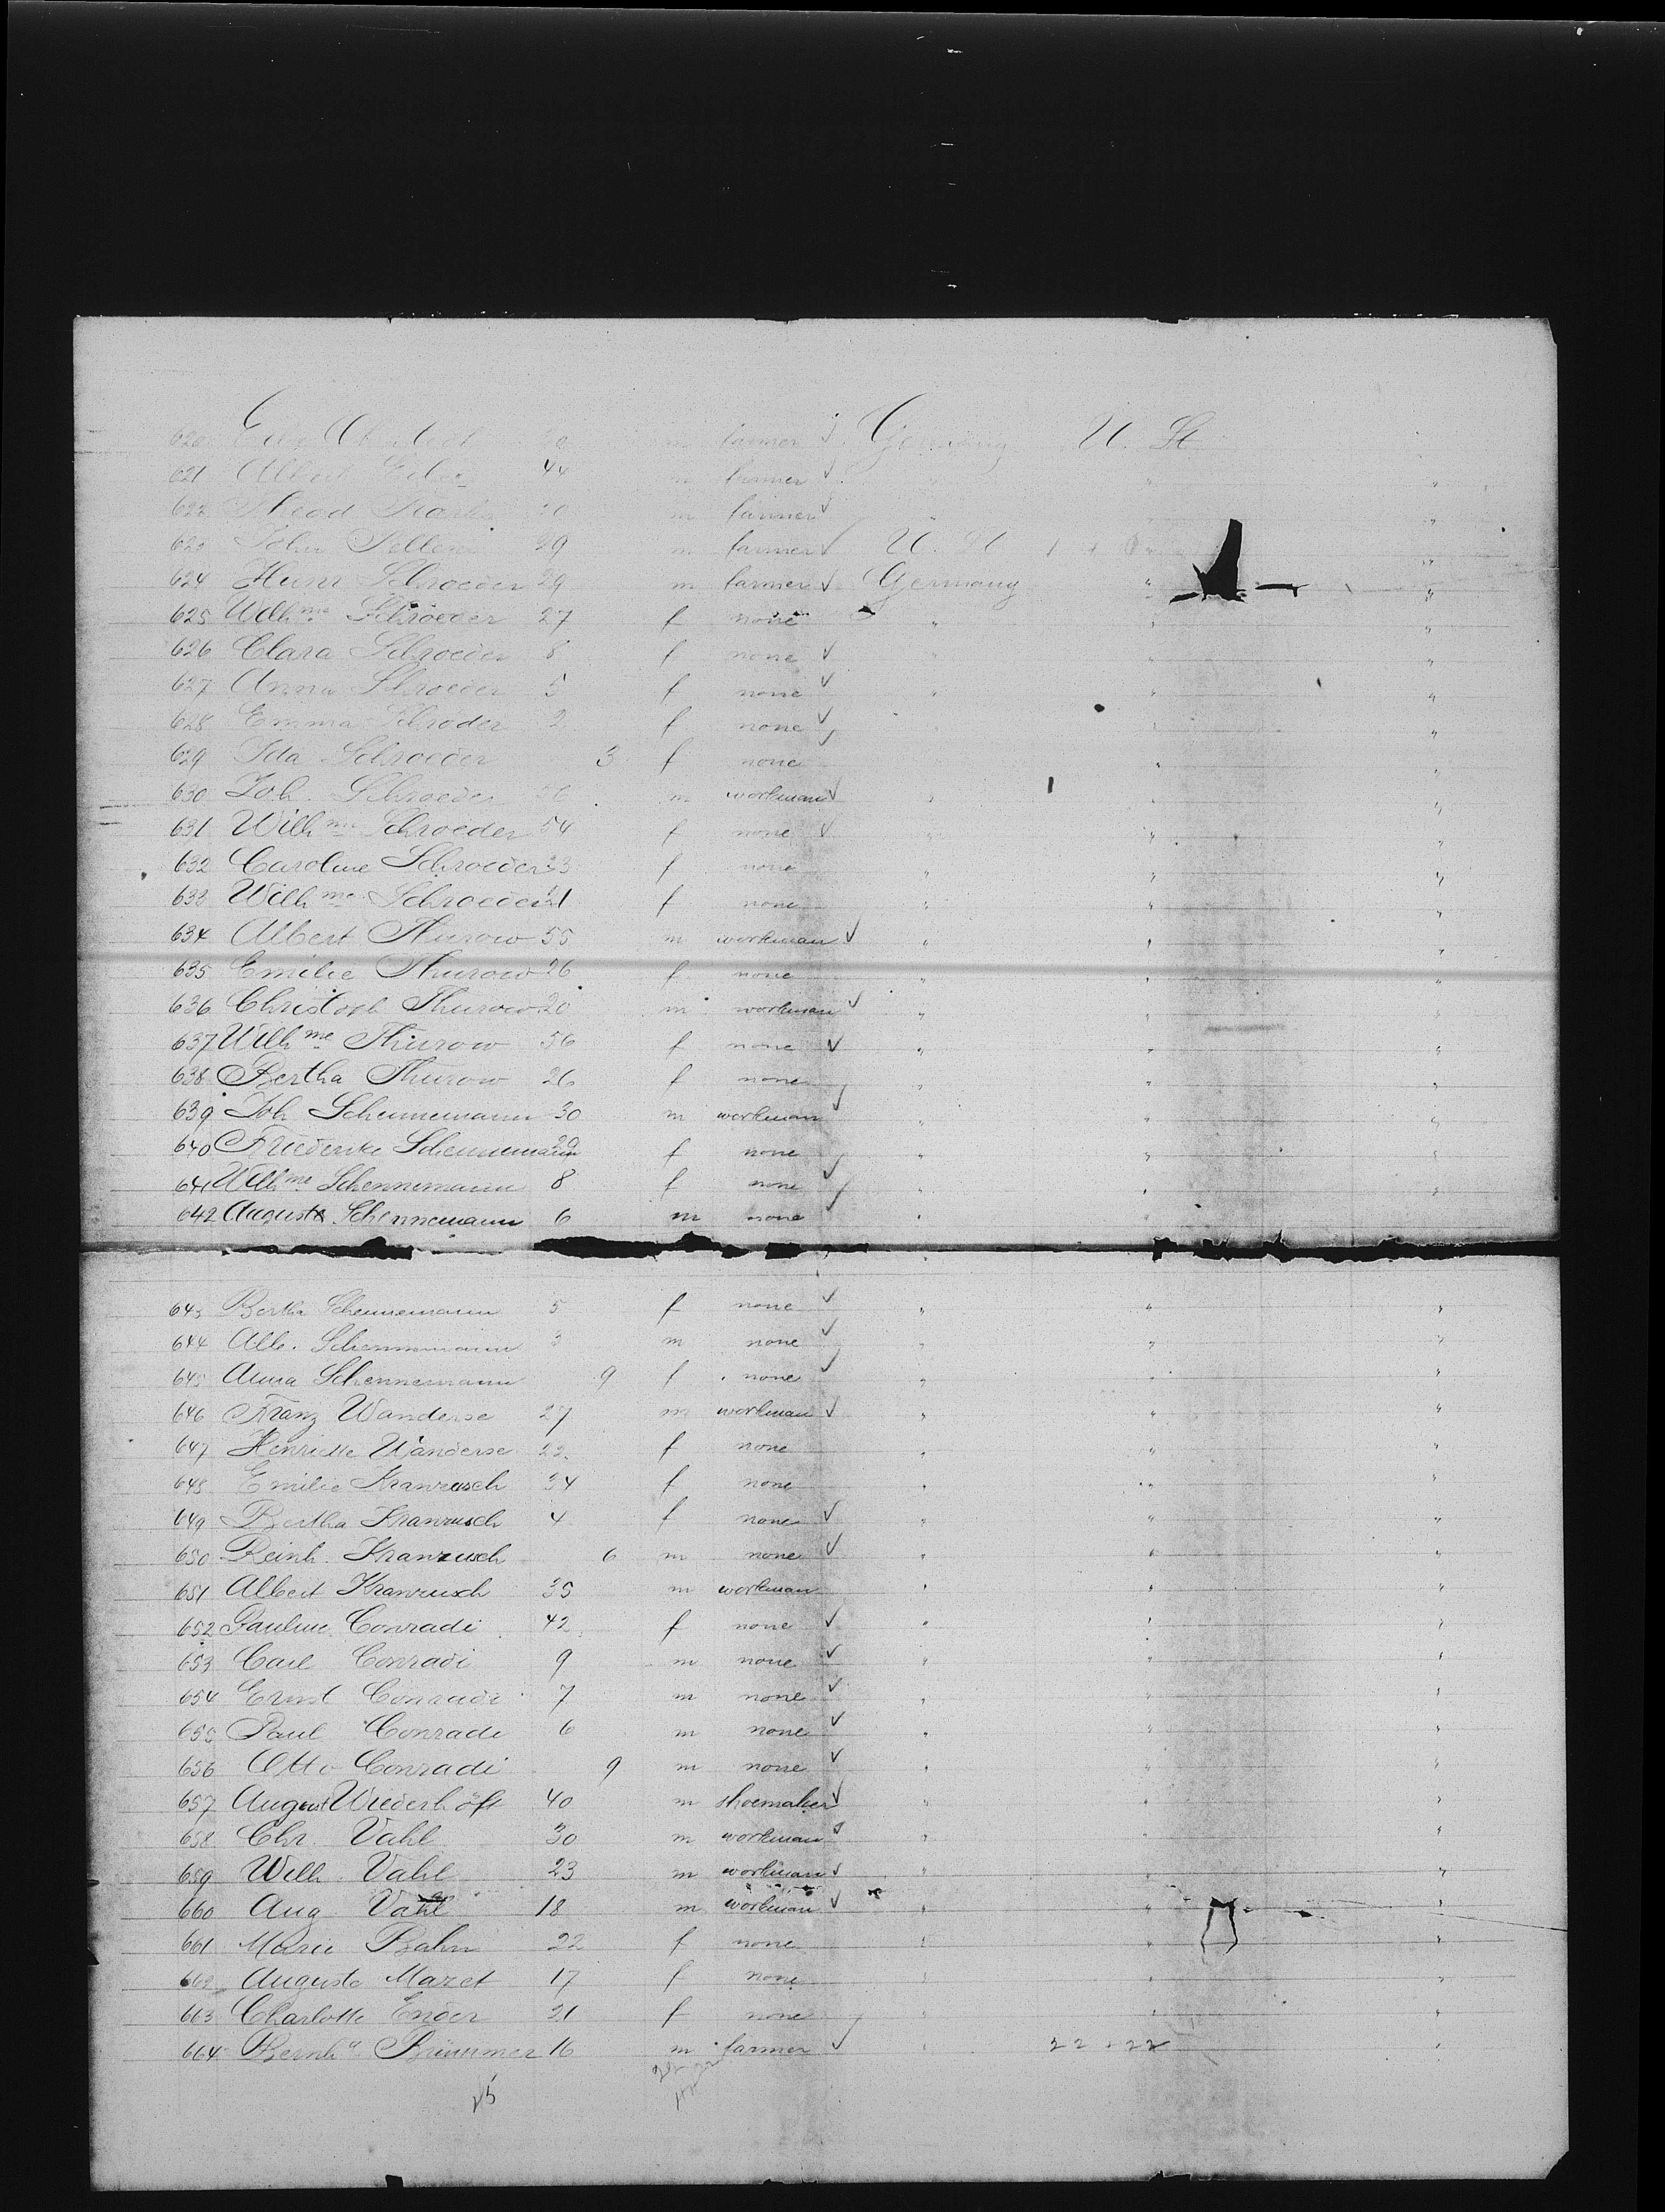 620 farmer Germany U. St
621 Albert 44 m farmer " "
622 m farmer " "
623 John 29 m farmer U. St " "
624 Schroeder 29 m farmer Germany " "
625 Wilhme Schroeder 27 f none " " "
626 Clara Schroeder 8 f none " " "
627 Anna Schroeder 5 f none " " "
628 Emma Schroder 2 f none " "
629 Ida Schroeder 3 f none " "
630 Joh. Schroeder m workman " " "
631 Wilhme Schroeder 54 f none " " "
632 Caroline Schroeder 23 f none " " "
633 Wilhme Schroeder 21 f none " " "
634 Albert Thurow 55 m workman " " "
635 Emilie Thurow 26 f none " " "
636 Christoph Thurow 20 m workman " " "
637 Wilhme Thurow 56 f none " " "
638 Bertha Thurow 26 f none " " "
639 Joh Schennemann 30 m workman " " "
640 Friederike Schennemann 29 f none " " "
641 Wilhme Schennemann 8 f none " " "
642 August Schennemann 6 m none " " "
643 Bertha Schennemann 5 f none " " "
644 Alb. Schennemann 3 m none " " "
645 Anna Schennemann 9 f none " " "
646 Franz Wanderse 27 m workman " " "
647 Henriette Wanderse 22 f none " " "
648 Emilie Kranzusch 34 f none " " "
649 Bertha Kranzusch 4 f none " " "
650 Reinh. Kranzusch 6 m none " " "
651 Albert Kranzusch 35 m workman " " "
652 Pauline Conradi 42 f none " " "
653 Carl Conradi 9 m none " " "
654 Ernst Conradi 7 m none " " "
655 Paul Conradi 6 m none " " "
656 Otto Conradi 9 m none " " "
657 August Wiederhöft 40 m shoemaker " " "
658 Chr. Vahl 30 m workman " " "
659 Wilh. Vahl 23 m workman " " "
660 Aug Vahl 18 m workman " " "
661 Marie Bahn 22 f none " " "
662 Auguste Mazet 17 f none " " "
663 Charlotte Enger 21 f none " " "
664 Bernhd Brümmer 16 m farmer " 22 + 22 "